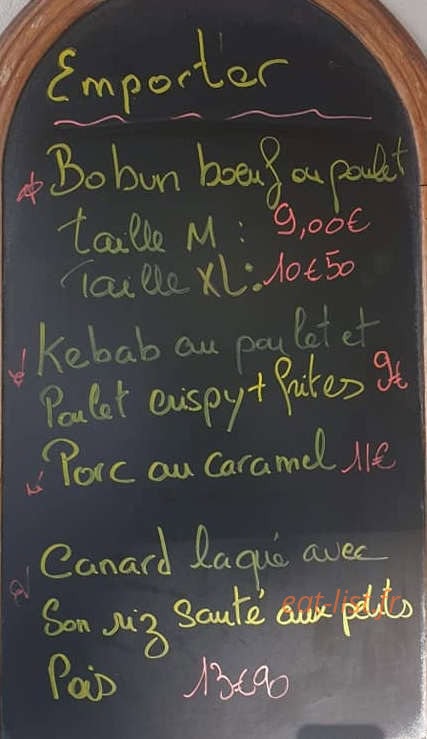 Emporter
Bobun boeuf ou poulet
Taille M : 9,00€
Taille XL : 10€50
Kebab au poulet et
Poulet crispy + frites 9€
Porc au caramel 11€
Canard laqué avec
Son riz sauté aux petits
eat-list.fr
Pois 13€90